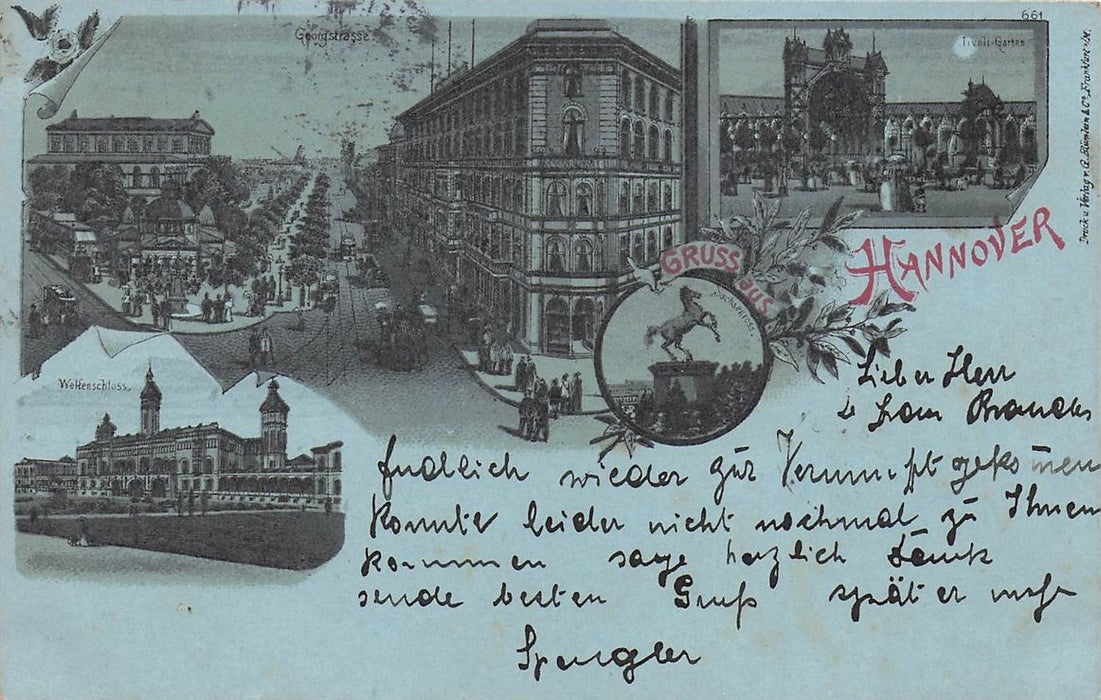 661
Georgstrasse
Tivoli-Garten
Druck u. Verlag v. G. Blümlein & Co., Frankfurt a/M.
GRUSS
aus
HANNOVER
Sachsenross
Welfenschloss
Lieber Herr
Brandes
Endlich wieder zur Vernunft gekommen
Konnte leider nicht nochmal zu Ihnen
kommen sage herzlich Dank
sende besten Gruß später mehr
Spengler